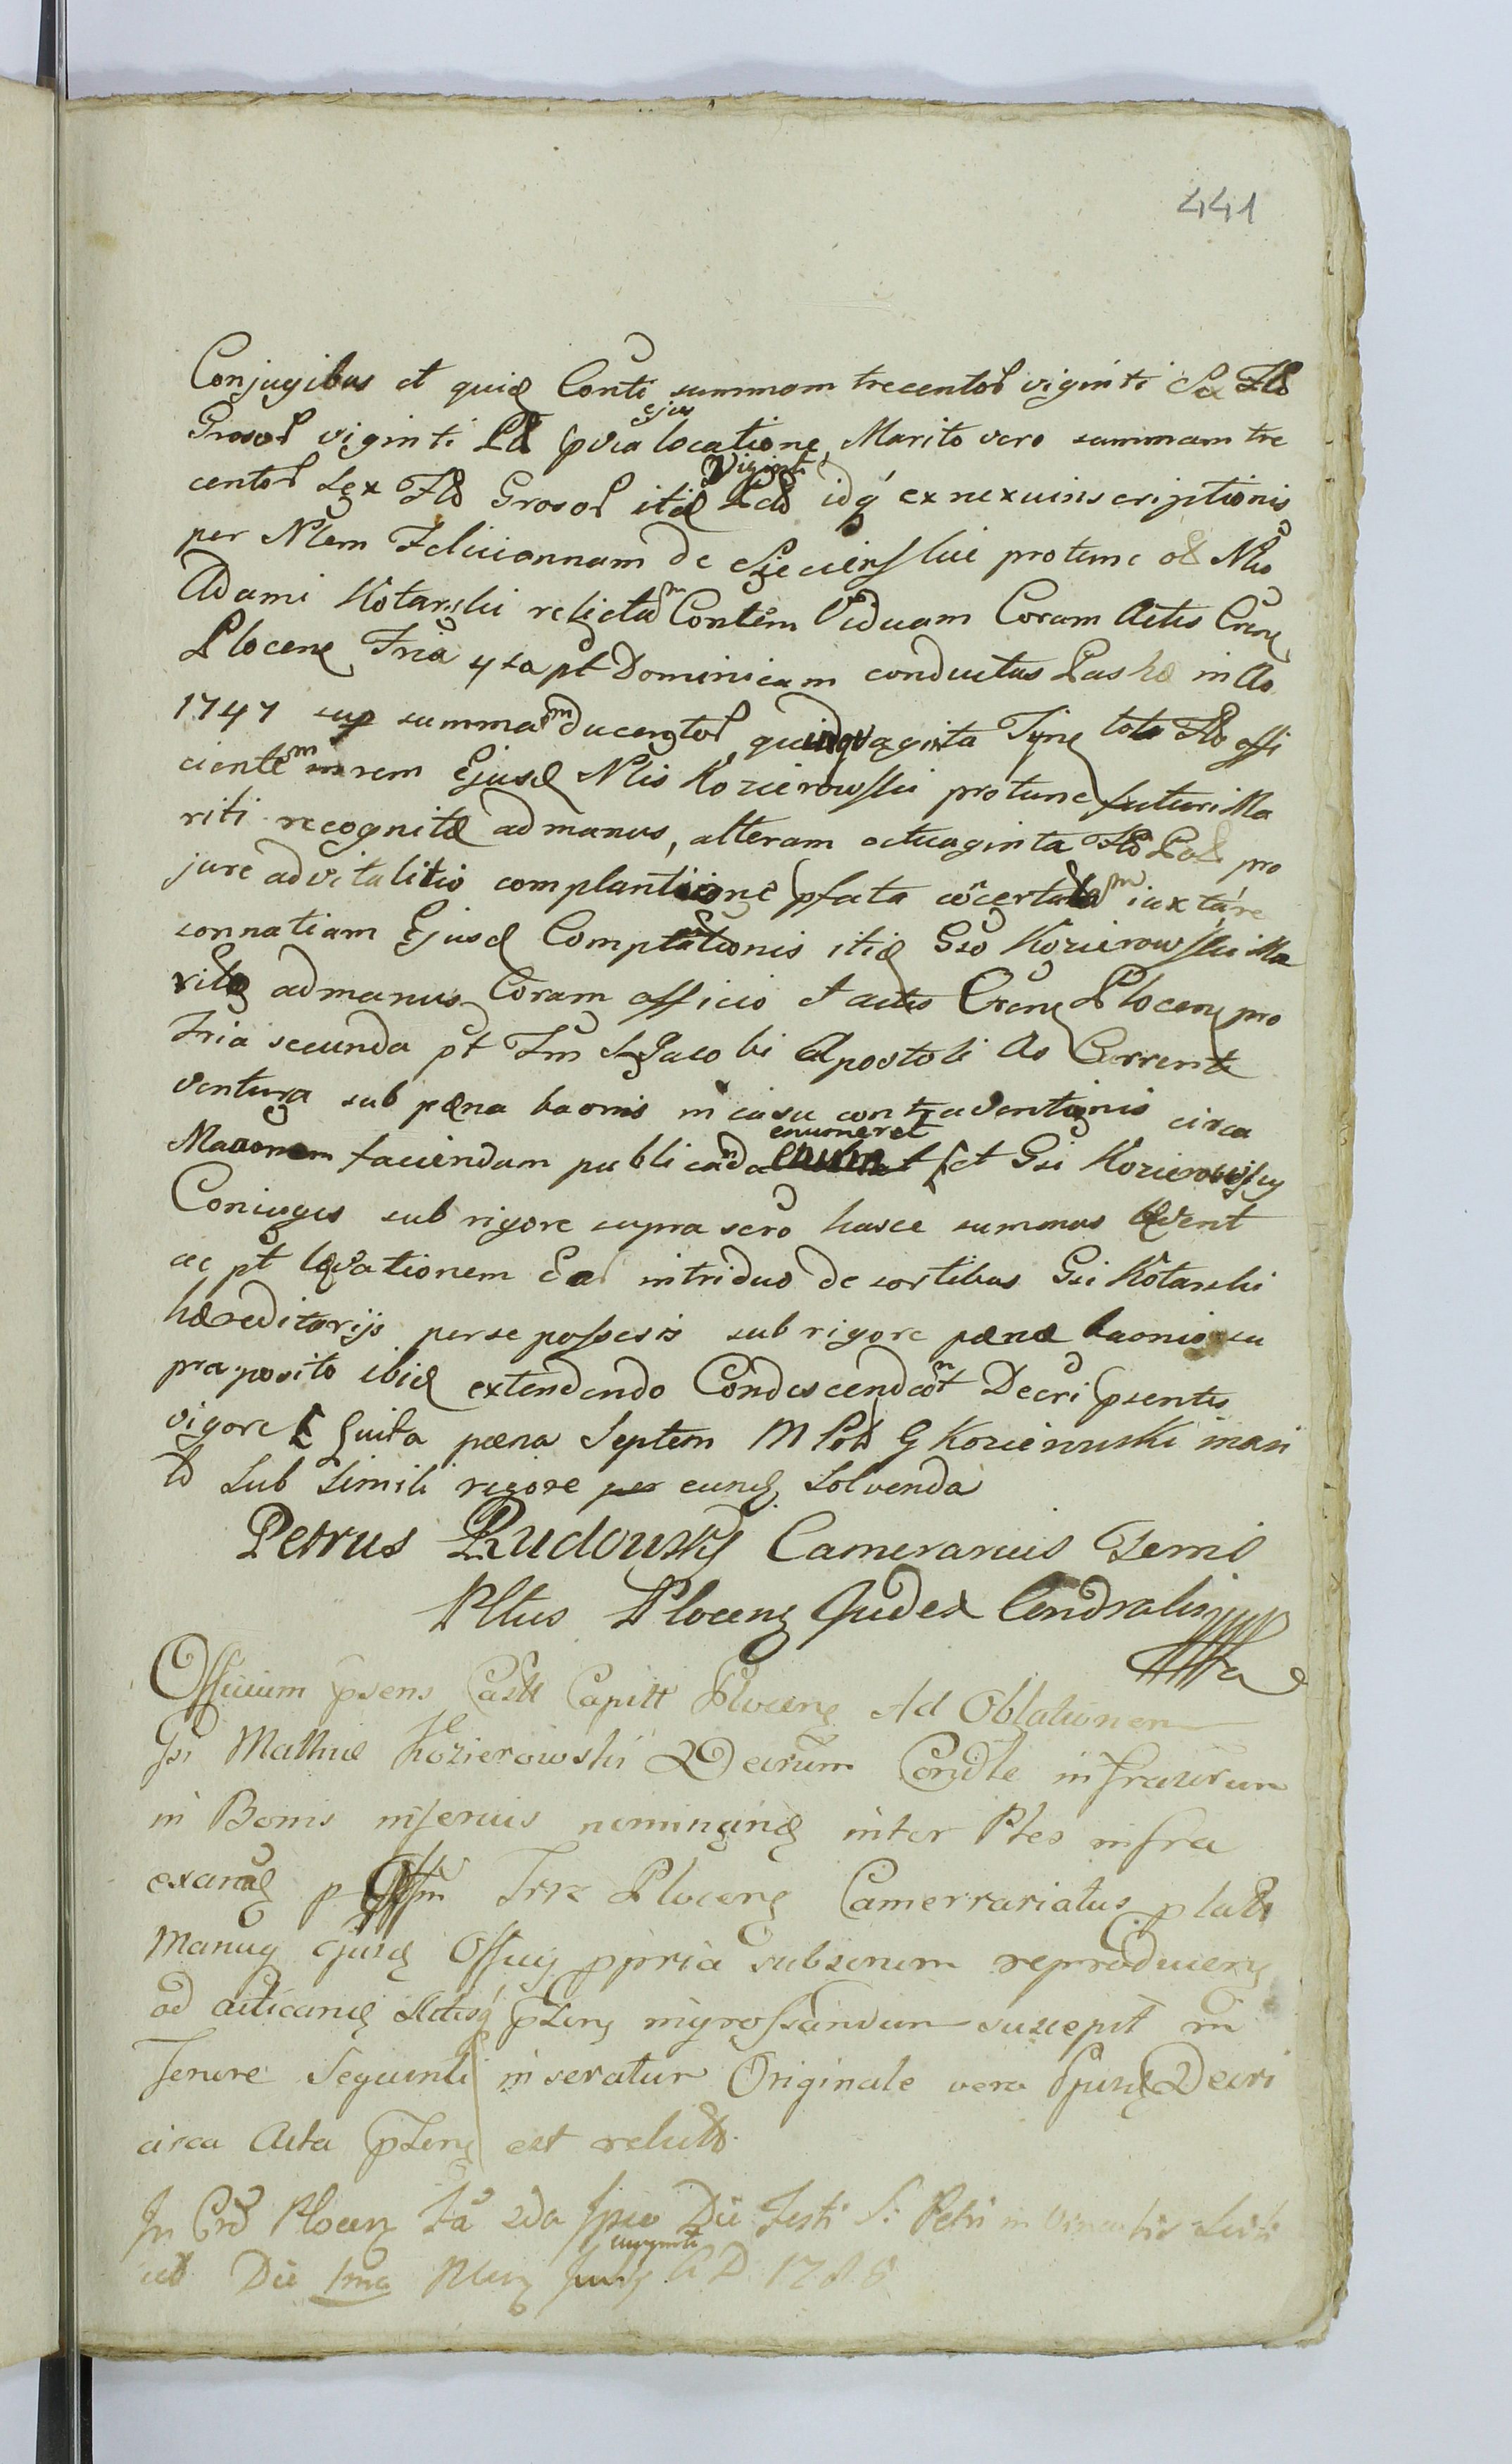 441
Conjugibus et quid Conti summam trecentor viginti Sex Flo
Grosor viginti Pol pvia ejus locatione, Marito vero summam tre
centor Sex Flo Grosor itid Viginti Pol idq ex nexu inscriptionis
per Nlem Feliciannam de Siecienskie protunc ol Nlis
Adami Kotarski relictam Contem Viduam Coram Actis Cren
Plocen Fria 4ta pt Dominicam conductus Paschæ in Ao
1747 sup summam ducentor quinquaginta Tyne toto Flo affi
cientem in rem Ejusd Nlis Kozierowski protunc futuri Ma
riti recognitæ ad manus, alteram octuaginta Flo Pol pro
jure advitalitio complanatione pfata concertatam iuxta re
sonnatiam Ejusd Complationis itid Gso Kozierowski Ma
rito ad manus Coram officio et actis Cren Plocen pro
Fria secunda pt Fm S Jacobi Apostoli Ao Currente
ventura sub pæna baonis in casu contraventionis circa
Maonem faciendam publicanda enumeret et Gsi Kozierowscy
Coniuges sub rigore supra scro hasce summas levent
ac pt levationem Ear intriduo de sortibus Gsi Kotarski
hæreditarijs per se possesis sub rigore pænæ baonis su
praposito ibid extendendo Condescendant Decri psentis
vigore Luita pæna Septem M Pol G Kozierowski mari
to sub simili rigore eund solvenda
Petrus Rudowski Camerarius Gernls
Pltus Plocens Judex Condralis mp
Officium psens Castr Capitt Plocens Ad Oblationem
Gsi Mathiæ Kozierowski Decrum Condle infrascrum
in Bonis inferius nominand inter Ptes infra
exarand p Offm Trr Plocens Camerrariatus plati
Manuq ejusd Officij ppria subscrum reproducens
ad acticand Actisq ptens ingrossandum suscepit in
Tenore Sequenti inseratur Originale vero Ejusd Decri
circa Acta ptens est relicto
In Cro Plocen Fa 2da Ipso Die Festi S: Petri in Vinculis
Die 1ma Mens Augusti A D 1788